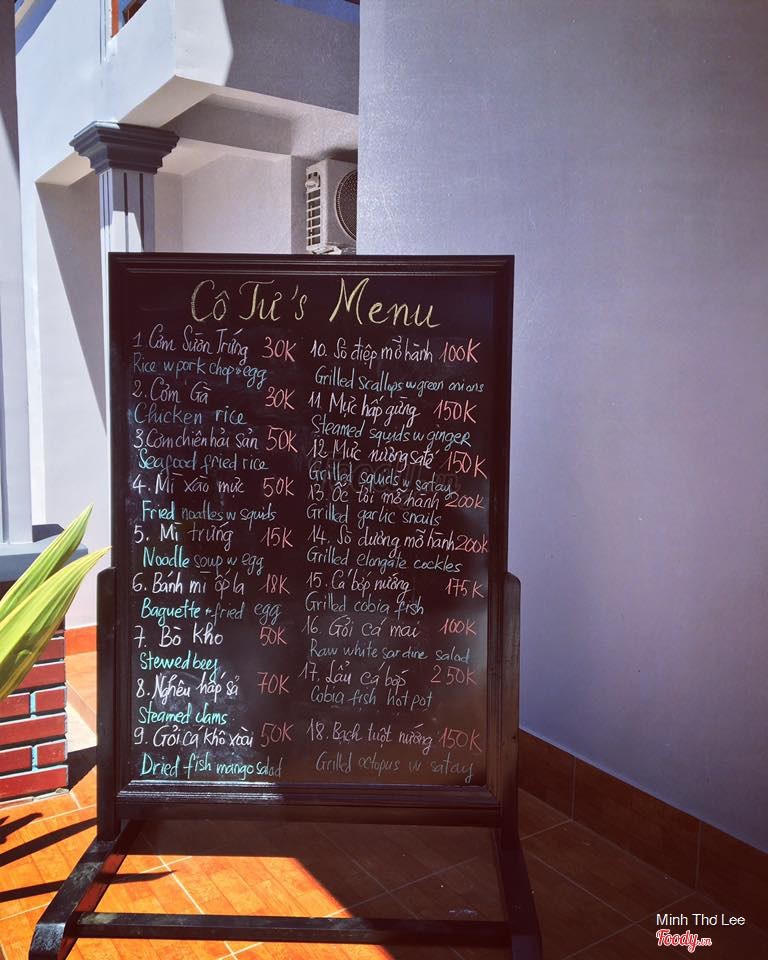 Cô Tư's Menu
1. Cơm Sườn Trứng 30K
Rice w pork chop + egg
2. Cơm Gà 30K
Chicken rice
3. Cơm chiên hải sản 50K
Seafood fried rice
4. Mì xào mực 50K
Fried noodles w squids
5. Mì trứng 15K
Noodle soup w egg
6. Bánh mì ốp la 18K
Baguette + fried egg
7. Bò kho 50K
Stewed beef
8. Nghêu hấp sả 70K
Steamed clams
9. Gỏi cá khô xoài 50K
Dried fish mango salad
10. Sò điệp mỡ hành 100K
Grilled scallops w green onions
11. Mực hấp gừng 150K
Steamed squids w ginger
12. Mực nướng saté 150K
Grilled squids w satay
13. Ốc tỏi mỡ hành 200K
Grilled garlic snails
14. Sò dương mỡ hành 200K
Grilled elongate cockles
15. Cá bóp nướng 175K
Grilled cobia fish
16. Gỏi cá mai 100K
Raw white sardine salad
17. Lẩu cá bóp 250K
Cobia fish hot pot
18. Bạch tuột nướng 150K
Grilled octopus w satay
Minh Thơ Lee
Foody.vn